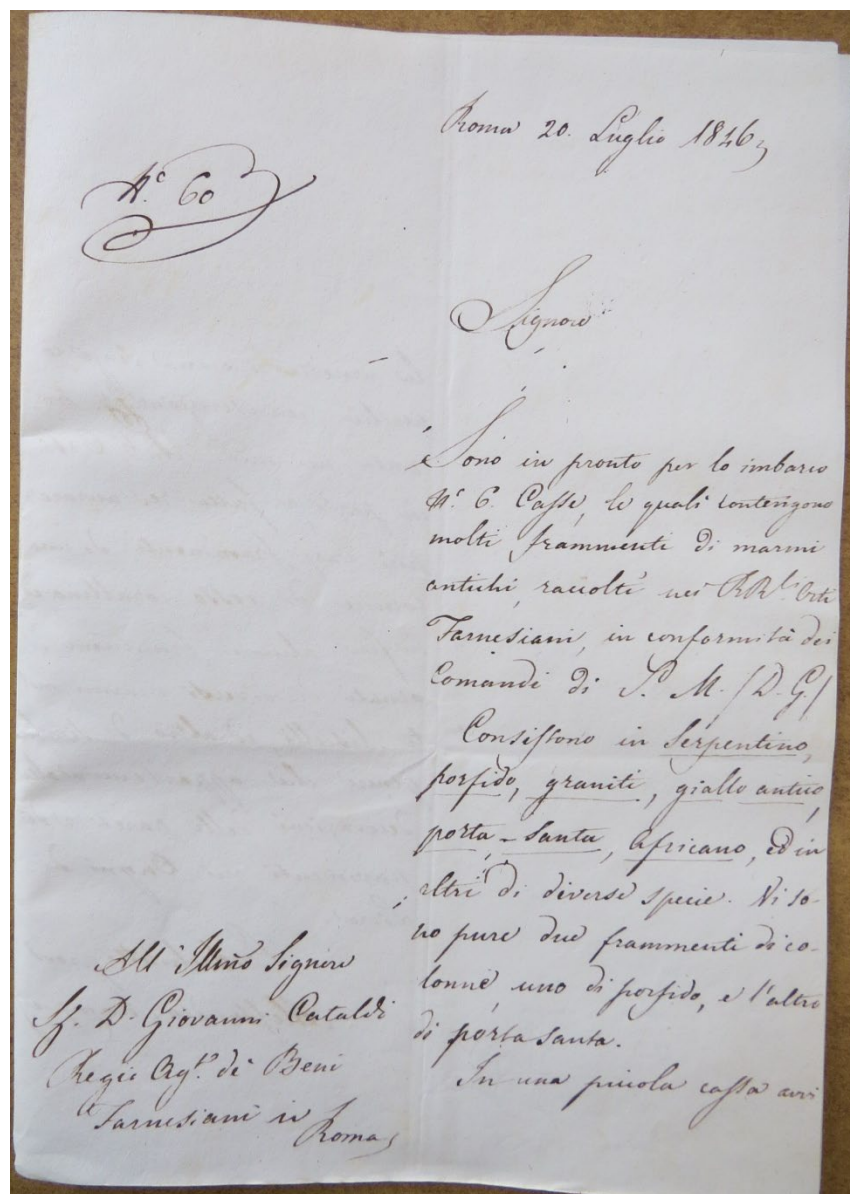 Nº. 60
Roma 20. Luglio 1846
Signore
Sono in pronto per lo imbarco
Nº. 6. Casse, le quali contengono
molti frammenti di marmi
antichi, raccolti nei RR.li Orti
Farnesiani, in conformità dei
Comandi di S. M. (D. G.)
Consistono in Serpentino,
porfido, graniti, giallo antico,
porta-Santa, Africano, ed in
altri di diverse specie. Vi so-
no pure due frammenti di co-
lonne, uno di porfido, e l'altro
di porta santa.
In una piccola cassa avvi
All'Illmo Signore
Sg. D. Giovanni Cataldi
Regio Agte. dè Beni
Farnesiani in
Roma